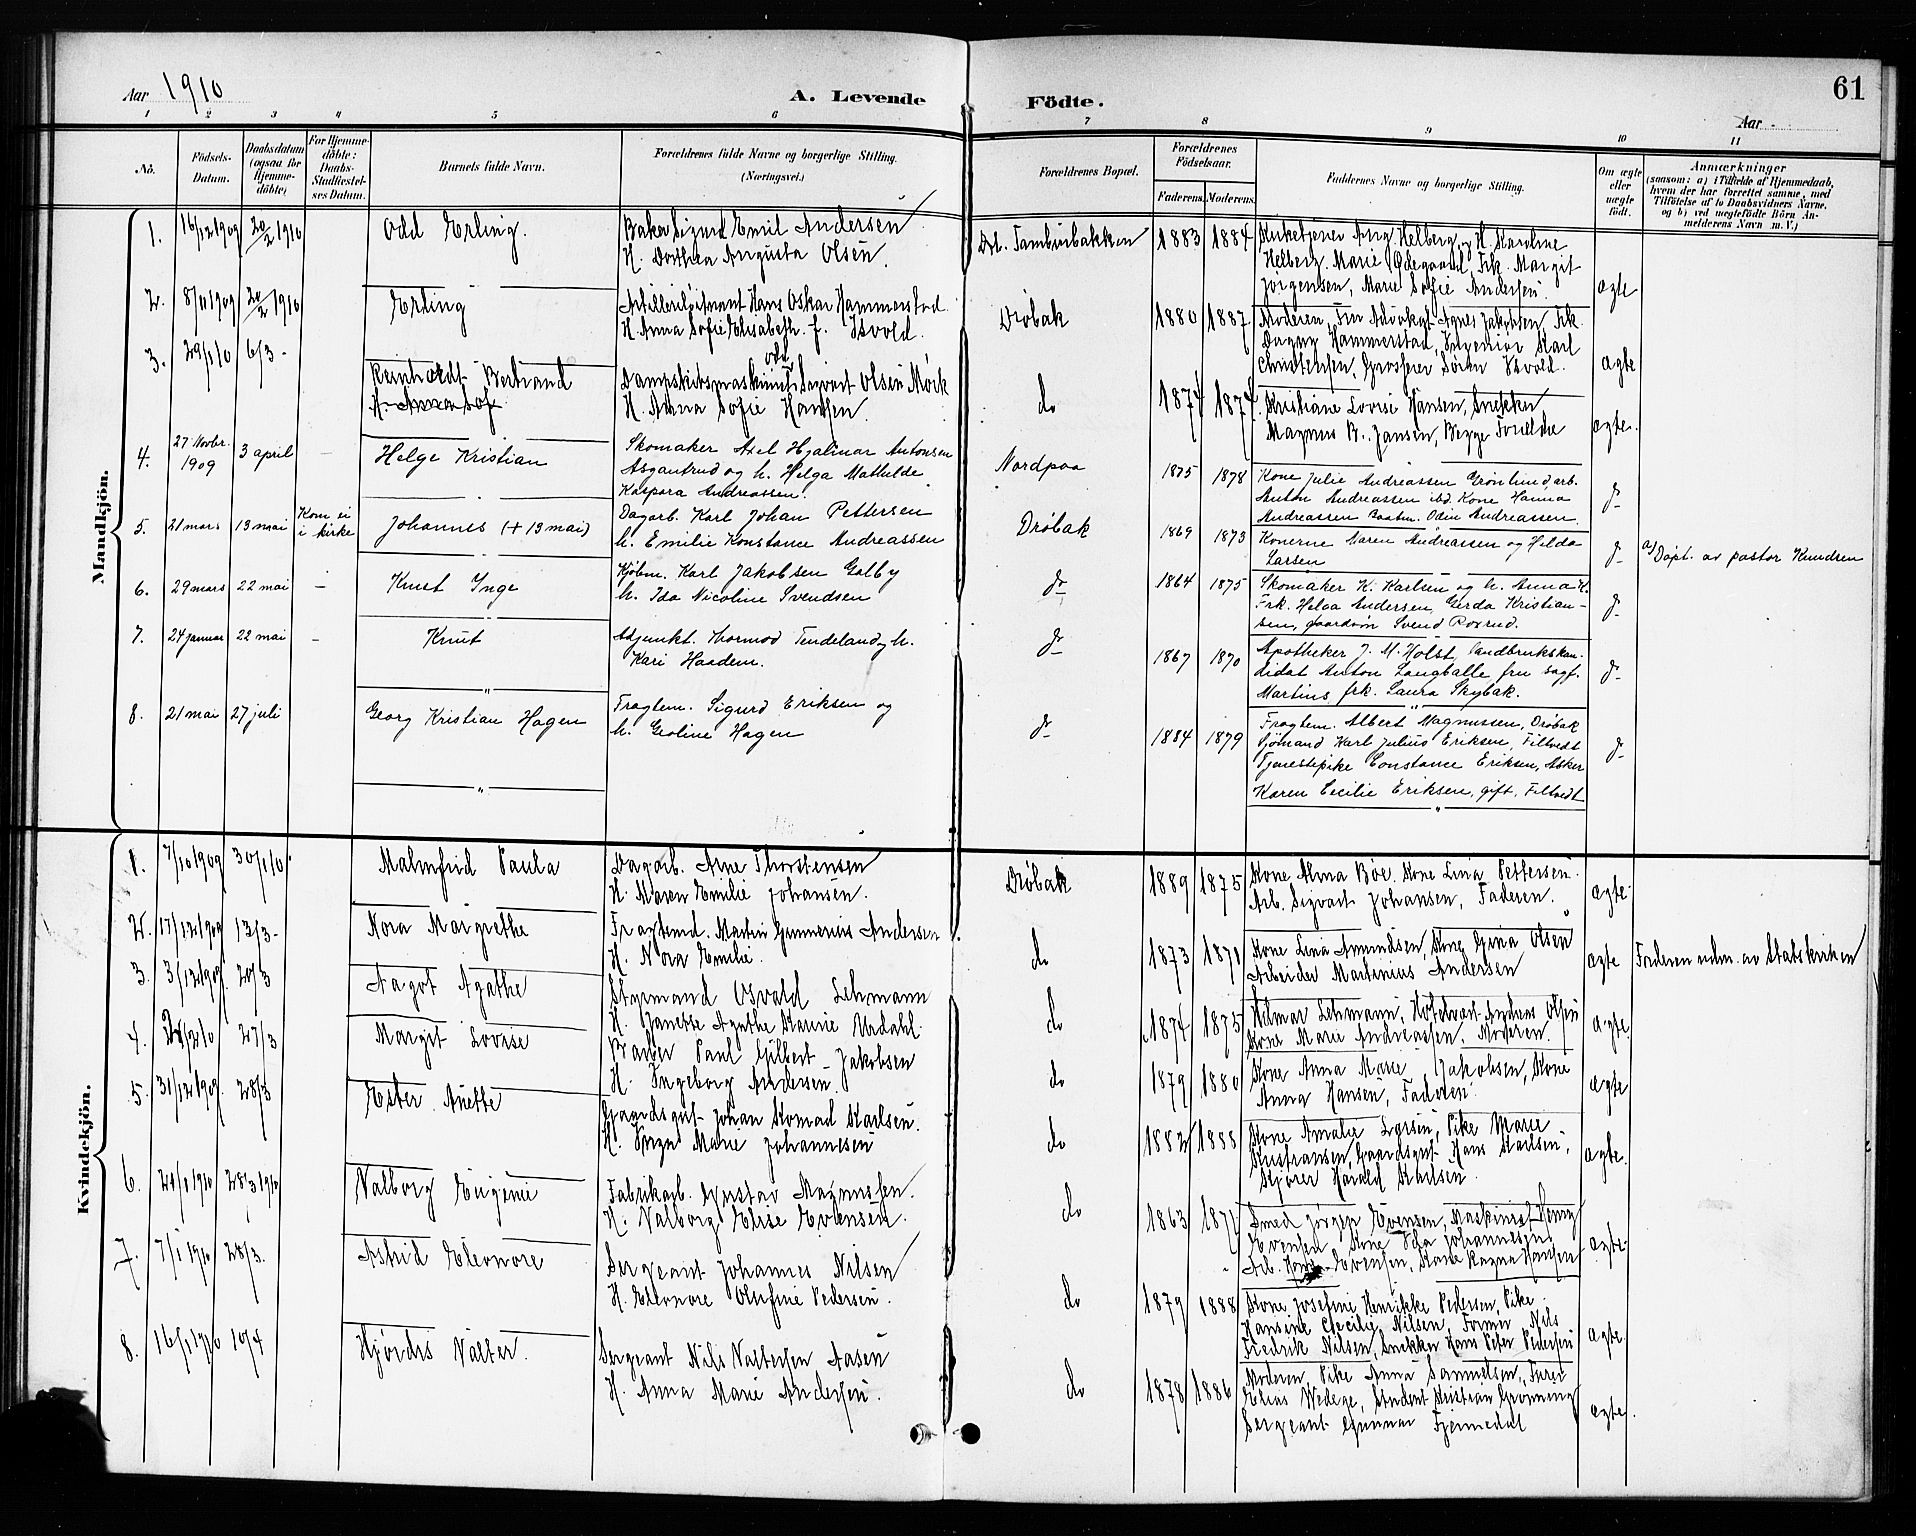 Aar 1910
A. Levende Födte.
61
Aar
1 2 3 4 5 6 7 8 9 10 11
No.
Födsels-Datum.
Daabsdatum (ogsaa for Hjemme-döbte)
For Hjemme-döbte: Daabs-Stadfæstel-ses Datum.
Barnets fulde Navn.
Forældrenes fulde Navne og borgerlige Stilling.
(Næringsvei.)
Forældrenes Bopæl.
Forældrenes Födselsaar.
Faderens. Moderens.
Faddernes Navne og borgerlige Stilling.
Om ægte eller uægte födt.
Anmærkninger
(saasom: a) i Tilfælde af Hjemmedaab,
hvem der har forrettet samme, med
Tilföielse af to Daabsvidners Navne,
og b) ved uægtefödte Börn An-
melderens Navn m. V.)
Mandkjön.
1. 16/12 1909 20/2 1910 Odd Erling.
Baker Sigurd Emil Andersen
H. Dorthea Augusta Olsen.
1883 1884
Kirketjener Aug. Helberg, H. Karoline
Helberg. Marie Ødegaard, Frk. Margit
Jørgensen, Marie Sofie Andersen.
ægte
2. 8/11 1909 20/2 1910 Erling
Artilleriløitnant Hans Oskar Hammerstad
H. Anna Sofie Elisabeth f.
Drøbak 1880 1887
Moderen, Fru Advokat Agnes Jakobsen, Frk.
Dagny Hammerstad, Ingeniør Karl
Christensen, Grosserer Sören
ægte
3. 29/1 10 6/3 -
Reinholdt Bertrand
H. Anna Sof
Dampskibsmaskinist Sigvart Olsen Mörk
H. Anna Sofie Hansen
do 1874 1874
Kristiane Lovise Hansen, Snekker
Magnus B. Jansen, Begge Forældre
ægte.
4. 27 Novbr. 1909 3 april - Helge Kristian
Skomaker Axel Hjalmar Antonsen
Asgautrud og h. Helga Mathilde
Kaspara Andreassen.
Nordpaa 1875 1878
Kone Julie Andreassen Grønlund, arb.
Anton Andreassen ibd. Kone Hanna
Andreassen Baatm. Odin Andreassen.
do
5. 21 mars 13 mai Kom ei i kirke Johannes (+ 13 mai)
Dagarb. Karl Johan Pettersen
h. Emilie Konstance Andreassen
Drøbak 1869 1873
Konerne Maren Andreassen og Hilda
Larsen
do
a/ Døpt. av pastor Knudsen
6. 29 mars 22 mai - Knut Inge
Kjøbm. Karl Jakobsen Galby
h. Ida Nicoline Svendsen
do 1864 1875
Skomaker K. Karlsen og h. Anna K.
Frk. Helga Andersen, Gerda Kristian-
sen, gaardsøn Svend Roxrud.
do
7. 24 januar 22 mai - Knut
Adjunkt. Hormod Tendeland, h.
Kari Haadem.
do 1867 1870
Apotheker J. M. Holst, landbrukskan-
didat Anton Langballe fru sagf.
Martins, frk. Laura Skybak.
do
8. 21 mai 27 juli Georg Kristian Hagen
Fragtem. Sigurd Eriksen og
h. Geoline Hagen
do 1884 1879
Fragtem. Albert Magnussen, Drøbak
Sjömand Karl Julius Eriksen, Filtvedt
Tjenestepike Constance Eriksen, Asker
Karen Cecilie Eriksen, gift, Filtvedt
do
Kvindekjön.
1. 7/10 1909 30/1 10 Malmfrid Paula
Dagarb. Arne Thorstensen
H. Maren Emilie Johansen.
Drøbak 1889 1875
Kone Alma Böe. Kone Lina Pettersen.
Arb. Sigvart Johansen, Faderen.
ægte.
2. 17/12 1909 13/3 - Nora Margrethe
Fragtemd. Martin Gunnerius Andersen
H. Nora Emilie.
do 1873 1871
Kone Lina Amundsen, Kone Gina Olsen
Arbeider Martinius Andersen
ægte
Forderen udm. av Statskirken
3. 3/12 1909 20/3 Aagot Agathe
Styrmand Osvald Lehmann
H. Janette Agathe Undahl.
do 1874 1875
Hilmar Lehmann, Hotelvært Andreas Olsen
Kone Marie Andreassen, Moderen.
ægte
4. 27/3 Margit Lovise
Barber Paul Gilbert Jakobsen
H. Ingeborg Andersen.
do 1879 1880
Kone Anna Marie Jakobsen, Kone
Anna Hansen, Faderen.
ægte
5. 31/12 1909 28/3 Ester Anette
Gaardsgut Johan Konrad Karlsen.
H. Marie Johannesen
do 1882 1888
Kone Amalie Larsen, Pike Marie
Kristiansen, Gaardsgut Hans Karlsen,
Kjører Harald Karlsen.
ægte.
6. 28/3 1910 Valborg Eugenie
Fabrikarb. Gustav Magnussen.
H. Valborg Elise Evensen.
do 1863 1871
Smed Jørgen Evensen, Maskinist Henry
Evensen Kone Ida Johannesen
Arb. Evensen, Kone Ragna Hansen
ægte.
7. 7/1 1910 28/3. Astrid Eleonore
Sergeant Johannes Nilsen
H. Eleonore Olufine Pedersen.
do 1879 1888
Kone Josefine Henrikke Pedersen, Pike
Hansine Cecilie Nilsen, Former Nils
Fredrik Nilsen, Snekker Hans Peter Pedersen
ægte.
8. 16/1 1910 10/4 Hjørdis Valter.
Sergeant Nils Valtersen Aasen
H. Anna Marie Andersen.
do 1878 1886
Moderen, Pike Anna Samuelsen, Furer
Elias Wedege, Student Kristian Grønning
Sergeant Gunnar Fjermedal
ægte.